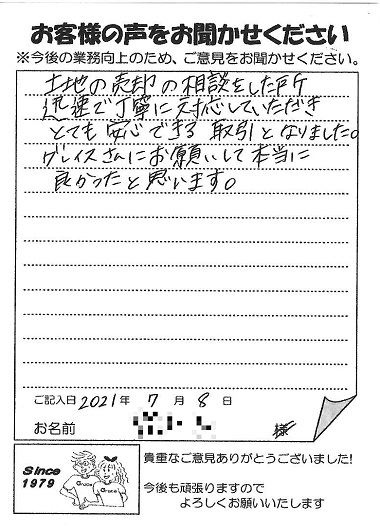 お客様の声をお聞かせください
※今後の業務向上のため、ご意見をお聞かせください。
土地の売却の相談をした所
迅速で丁寧に対応していただき
とても安心できる取引となりました。
グレイスさんにお願いして本当に
良かったと思います。
ご記入日 2021年 7月 8日
お名前 様
Since
1979
Grace
Grace
貴重なご意見ありがとうございました!
今後も頑張りますので
よろしくお願いいたします